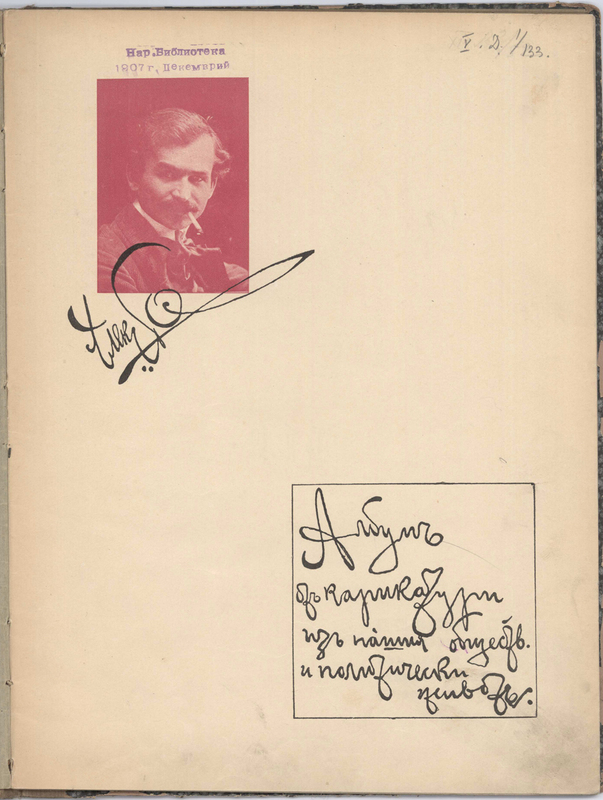 V. Д. 1/133.
Нар. Библиотека
1907 г. Декемврий
Албумъ
съ карикатури
изъ нашия обществ.
и политически
животъ.